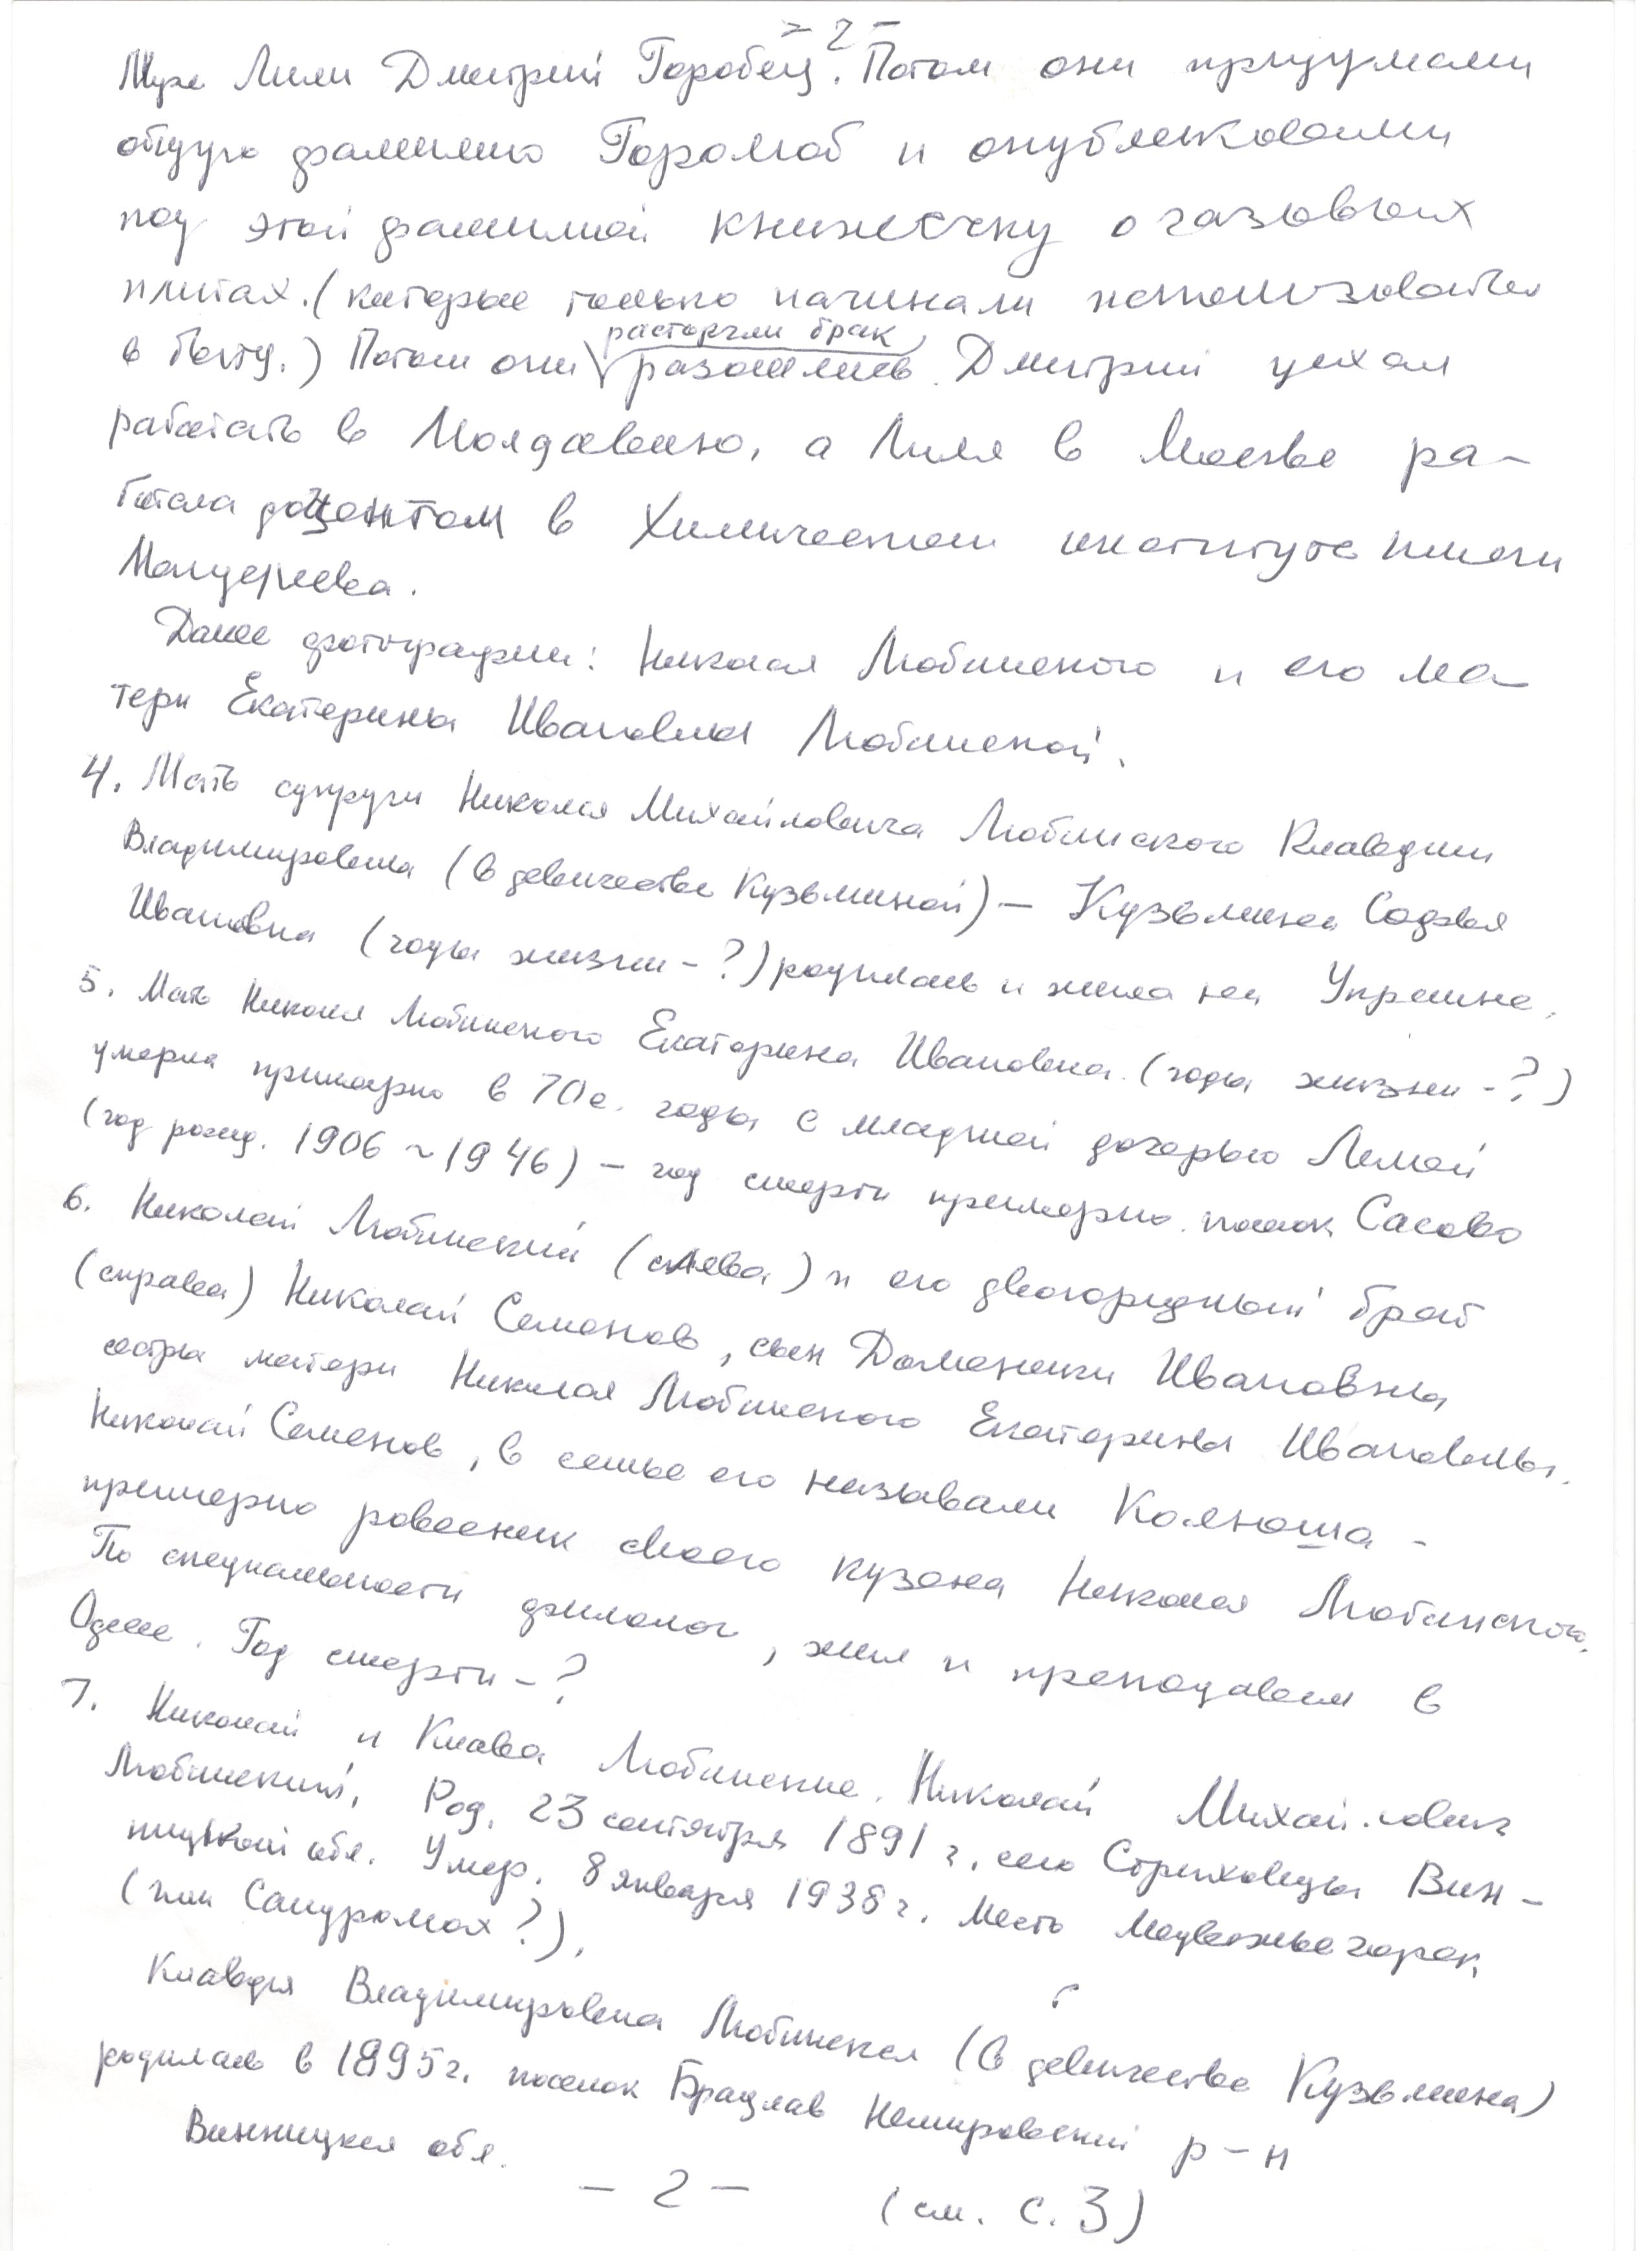 - 2 -
Муж Лили Дмитрий Горобец. Потом они придумали
общую фамилию Горолюб и опубликовали
под этой фамилией книжечку о газовых
плитах. (которые только начинали использоваться
в быту.) Потом они расторгли брак
разошлись. Дмитрий уехал
работать в Молдавию, а Лиля в Москве ра-
ботала доцентом в Химическом институте имени
Менделеева.
Далее фотографии: Николая Любинского и его ма-
тери Екатерины Ивановны Любинской.
4. Мать супруги Николая Михайловича Любинского Клавдии
Владимировны (в девичестве Кузьминой) — Кузьмина Софья
Ивановна (годы жизни - ?) родилась и жила на Украине.
5. Мать Николая Любинского Екатерина Ивановна. (годы жизни - ?)
умерла примерно в 70е. годы с младшей дочерью Лилей
(год рожд. 1906 ~ 1946) - год смерти примерно. Сасово
6. Николай Любинский (слева) и его двоюродный брат
(справа) Николай Семенов, сын Доменики Ивановны
сестры матери Николая Любинского Екатерины Ивановны.
Николай Семенов, в семье его называли Колюша -
примерно ровесник своего кузена Николая Любинского.
По специальности филолог, жил и преподавал в
Одессе. Год смерти - ?
7. Николай и Клава Любинские. Николай Михайлович
Любинский, Род. 23 сентября 1891 г. село Стриховцы Вин-
ницкой обл. Умер. 8 января 1938 г. Место Медвежьегорск
(или Сандромах?).
Клавдия Владимировна Любинская (в девичестве Кузьмина)
родилась в 1895 г. поселок Брацлав Немировский р-н
Винницкая обл.
- 2 - (см. с. 3)